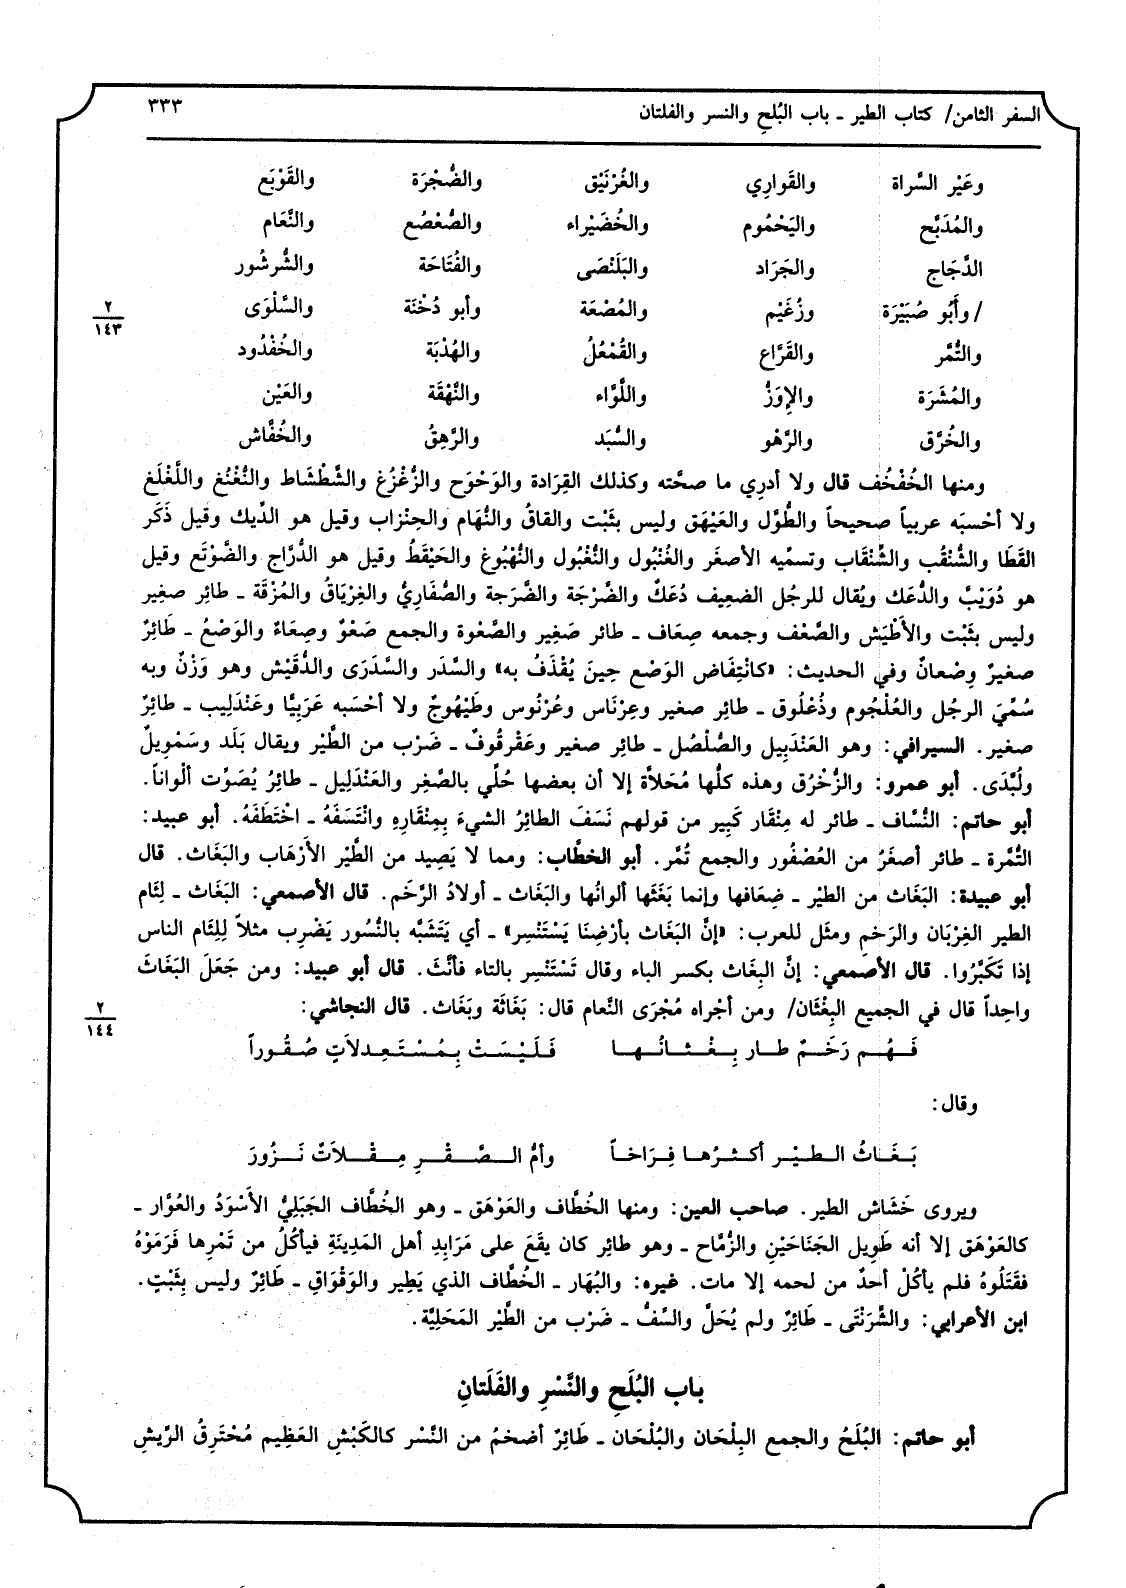 السفر الثامن/ كتاب الطير ـ باب البُلَحِ والنسر والفلتان ٣٣٣
وعَيْر السَّراة والقَوارِي والغُرْنَيْق والضُّجْرَة والقَوْبَع
والمُدَبَّح واليَحْمُوم والخُضَيْراء والصُّعْصُع والنَّعَام
الدَّجَاج والجَرَاد والبَلَنْصَى والفُتَاحَة والشُّرشُور
/ وأَبُو صُبَيْرَة وزُغَيْم والمُصْعَة وأبو دُخْنَة والسَّلْوَى
٢
١٤٣
والتُّمَّر والقَرَّاع والقُمْعُلُ والهُدْبَة والخُفْدُود
والمُشَرَة والإِوَزُّ واللَّوَّاء والنُّهْقَة والعَيْن
والخُرَّق والرَّهْو والسُّبَد والرَّهِقُ والخُفَّاش
ومنها الخُفْخُف قال ولا أدرِي ما صحَّته وكذلك القِرَادة والوَحْوَح والزُّغْزُغ والشَّطْشَاط والنُّغْنُغ واللَّغْلَغ
ولا أحْسبَه عربياً صحيحاً والطُّوَّل والعَيْهَق وليس بثَبْت والقاقُ والنُّهَام والحِنْزاب وقيل هو الدِّيك وقيل ذَكَر
القَطَا والشُّنْقُب والشِّنْقَاب وتسمِّيه الأصغَر والغُنْبُول والنُّغْبُول والنُّهْبُوغ والحَيْقَطُ وقيل هو الدُّرَّاج والضَّوْتَع وقيل
هو دُوَيْبَّ والدُّعَك ويُقال للرجُل الضعِيف دُعَكٌ والصُّرْجَة والصُّرَجة والصُّفَارِيُّ والغِرْيَاقُ والمُزْقَة ـ طائِر صغِير
وليس بثَبْت والأَطْيَش والصَّعْف وجمعه صِعَاف ـ طائر صَغِير والصَّعْوة والجمع صَعْوٌ وصِعَاءٌ والوَصْعُ ـ طَائِرٌ
صغيرٌ وِصْعانٌ وفي الحديث: «كانْتِفَاض الوَصْع حِينَ يُقْذَفُ به» والسِّدَر والسَّدَرَى والدُّقَيْش وهو وَزْنٌ وبه
سُمِّيَ الرجُل والعُلْجُوم وذُعْلُوق ـ طائِر صغير وعِرْنَاس وعُرْنُوس وطَيْهُوجٌ ولا أحْسَبه عَرَبِيًّا وعَنْدَلِيب ـ طائِرٌ
صغير. السيرافي: وهو العَنْدَبِيل والصُّلْصُل ـ طائِر صغير وعَقَرقُوفٌ ـ ضَرْب من الطَّيْر ويقال بَلَد وسَمْوِيلٌ
ولُبَّدَى. أبو عمرو: والزُّخْرُق وهذه كلُّها مُحَلاَّة إلا أن بعضها حُلِّي بالصِّغِر والعَنْدَلِيل ـ طائِرُ يُصَوِّت ألْواناً.
أبو حاتم: النُّسَّاف ـ طائر له مِنْقَار كَبِير من قولهم نَسَفَ الطائِرُ الشيءَ بِمِنْقارِهِ وانْتَسَفَهُ ـ اخْتَطَفَهُ. أبو عبيد:
التُّمَّرة ـ طائر أصغَرُ من العُصْفُور والجمع تُمَّر. أبو الخطَّاب: ومما لا يَصِيد من الطَّيْر الأَرْهَاب والبَغَاث. قال
أبو عبيدة: البَغَاث من الطيْر ـ ضِعَافها وإنما بَغَثَها ألوانُها والبَغَاث ـ أولادُ الرَّخَم. قال الأصمعي: البَغَاث ـ لِئَام
الطير الغِرْبَان والرَخَمِ ومثَل للعرب: «إنَّ البَغَاث بأرْضِنَا يَسْتَنْسِر» ـ أي يَتَشَبَّه بالنُّسُور يَضْرِب مثلاً لِلِئَام الناس
إذا تَكَبَّرُوا. قال الأصمعي: إنَّ البِغَاث بكسر الباء وقال تَسْتَنْسِر بالتاء فأنَّثَ. قال أبو عبيد: ومن جَعَلَ البَغَاثَ
واحِداً قال في الجميع البِغْثَان/ ومن أجْراه مُجْرَى النَّعام قال: بَغَاثَة وبَغَاث. قال النجاشي:
٢
١٤٤
فَـهُـم رَخَـمٌ طـار بِـغْـثـانُـهـا فَـلَـيْـسَـتْ بِـمُـسْـتَـعِـدلاَتٍ صُـقُـوراً
وقال:
بَـغَـاثُ الـطـيْـر أكـثـرُهـا فِـرَاخـاً وأمُّ الـصَّـقْـرِ مِـقْـلاَتٌ نَـزُورَ
ويروى خَشَاش الطير. صاحب العين: ومنها الخُطَّاف والعَوْهَق ـ وهو الخُطَّاف الجَبَلِيُّ الأَسْوَدُ والعُوَّار ـ
كالعَوْهَق إلا أنه طَوِيل الجَنَاحَيْنِ والزُّمَّاح ـ وهو طائِر كان يقَعَ على مَرَابِدِ أهل المَدِينَةِ فيأكُلُ من تَمْرِها فَرَمَوْهُ
فقَتَلُوهُ فلم يأكُلْ أحدٌ من لحمه إلا مات. غيره: والبُهَار ـ الخُطَّاف الذي يَطِير والوَقْوَاقِ ـ طَائِرٌ وليس بِثَبْتٍ.
ابن الأعرابي: والشَّرَنْتَى ـ طَائِرٌ ولم يُحَلَّ والسِّفُّ ـ ضَرْب من الطَّيْر المَحَلِيَّة.
باب البُلَحِ والنَّسْرِ والفَلَتانِ
أبو حاتم: البُلَحُ والجمع البِلْحَان والبُلْحَان ـ طَائِرٌ أضخمُ من النَّسْر كالكَبْشِ العَظِيم مُحْتَرِقُ الرِّيشِ